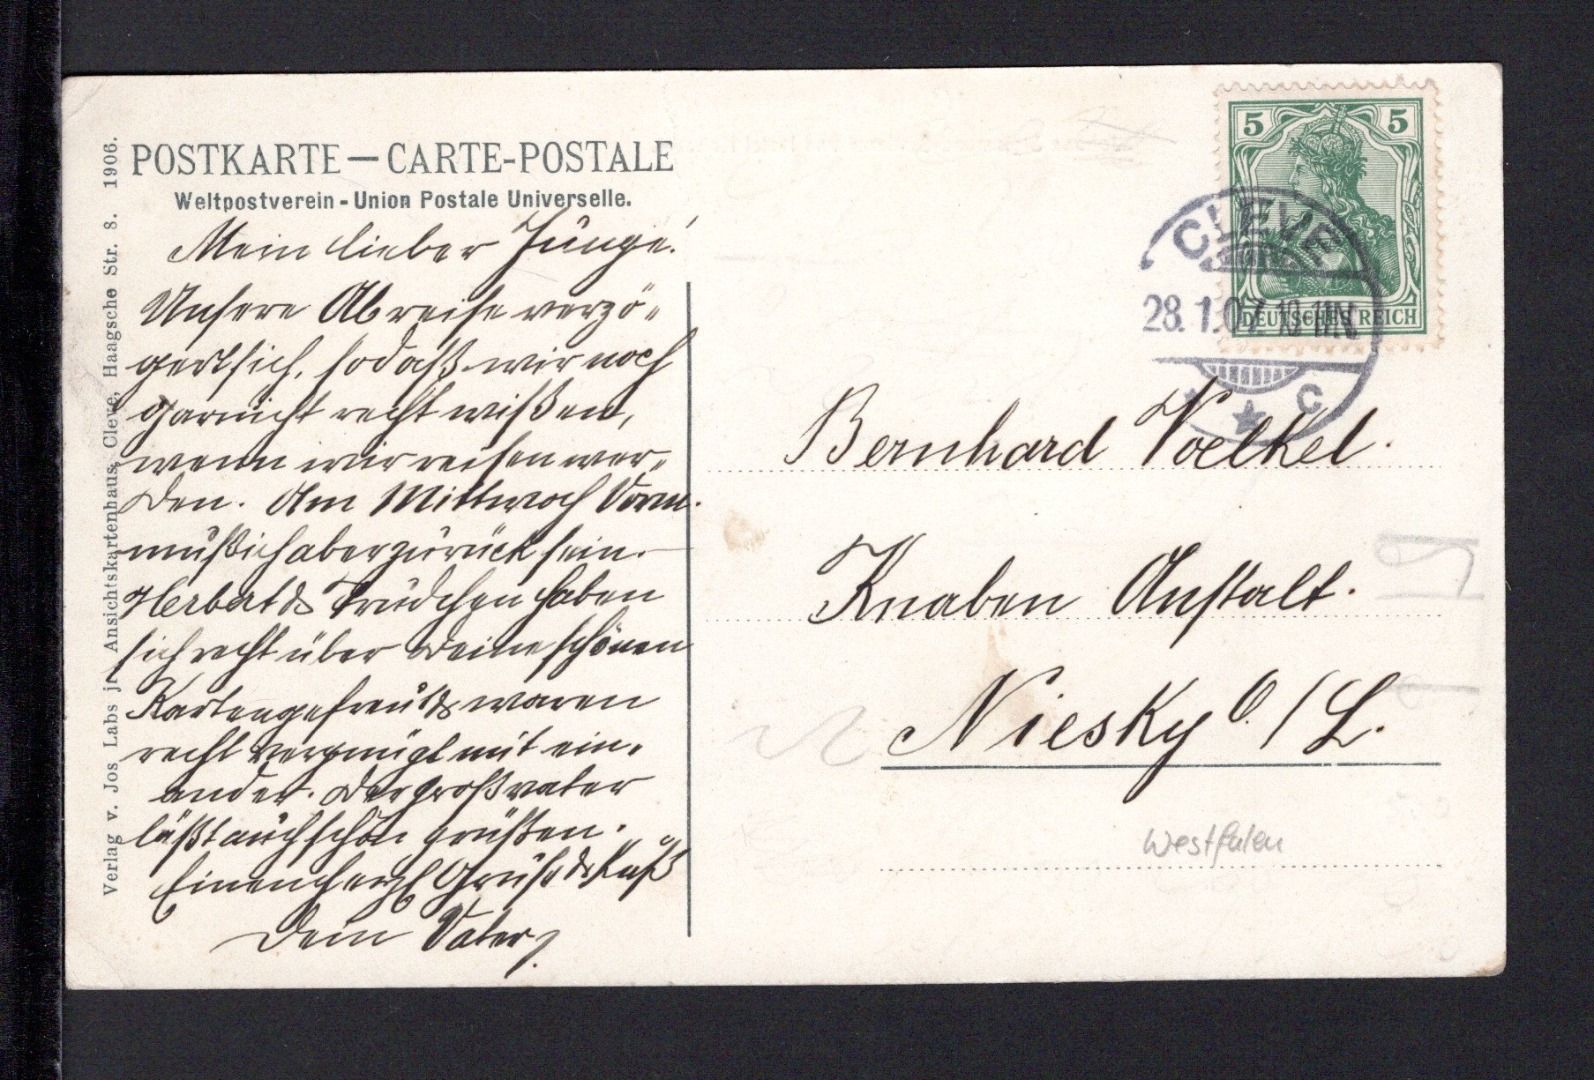 POSTKARTE — CARTE-POSTALE
Weltpostverein - Union Postale Universelle.
Mein lieber Junge!
Unsere Abreise verzö-
gert sich, sodaß wir noch
garnicht recht wißen,
wenn wir reisen wer-
den. Am Mittwoch Vorm.
muß ich aber zurück sein.
Herbert & Trudchen haben
sich recht über Deine schönen
Karten gefreut & waren
recht vergnügt mit ein-
ander. Der Großvater
läßt auch schön grüßen.
Einen herzl Gruß & Kuß
Dein Vater
Verlag v. Jos Labs jr. Ansichtskartenhaus, Cleve, Haagsche Str. 8. 1906.
5 5
DEUTSCHES REICH
CLEVE
28.1.07. 10-11N
* ★ C
Bernhard Voelkel.
Knaben Anstalt.
Niesky O./L.
Westfalen